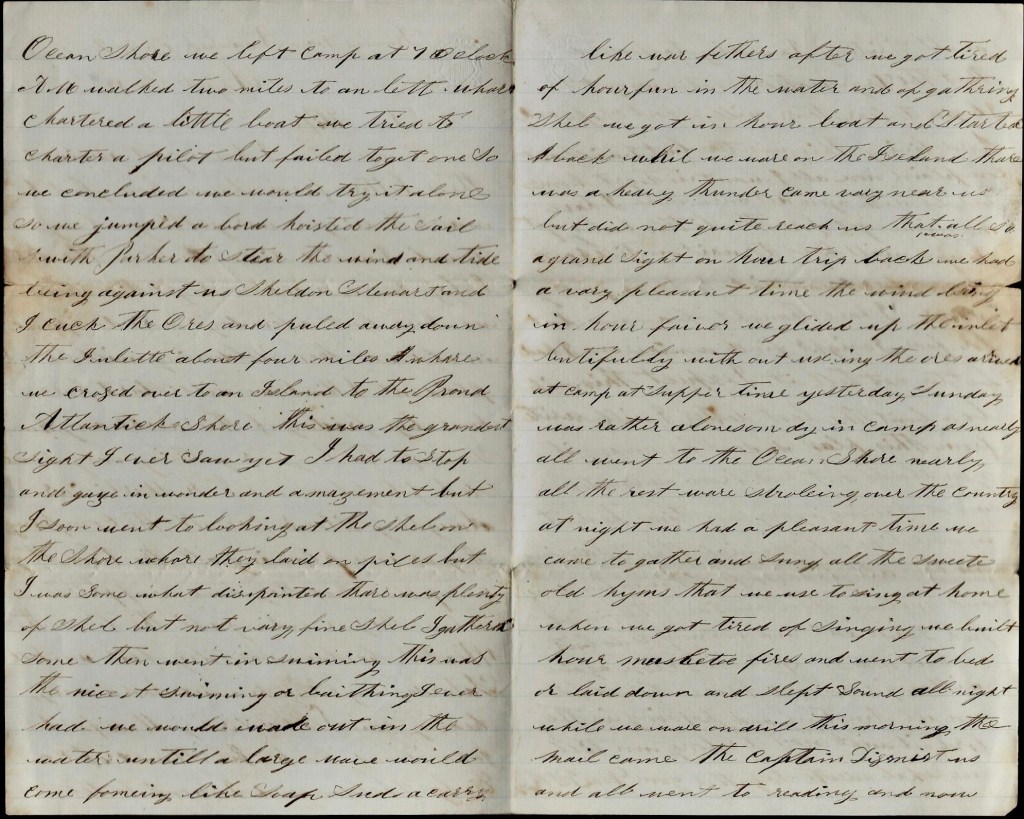 Ocean Shore we left camp at 7 Oclock
A M walked two miles to an lett whare
chartered a little boat we tried to
charter a pilot but failed to get one So
we concluded we would try it alone
So we jumped a bord hoisted the Sail
with Parker to Stear the wind and tide
being against us Sheldon Stewart and
I tuck the Ores and puled away down
the Inlette about four miles whare
we crosed over to an Island to the Broad
Atlantick Shore this was the grandest
Sight I ever Saw yet I had to Stop
and gaye in wonder and amazement but
I soon went to looking at the Shel on
the Shore whare they laid in piles but
I was Some what disipainted thare was plenty
of Shel but not vary fine Shel I gathered
Some then went in swiming this was
the nicest swiming or baithing I ever
had we would wade out in the
water untill a large wave would
come fomeing like Soap Suds a carry
like war fethers after we got tired
of hour fun in the water and of gathring
Shel we got in hour boat and Started
back whil we ware on the Iseland thare
was a heavy thunder came vary near us
but did not quite reach us that all So
was
a grand Sight on hour trip back we had
a vary pleasant time the wind being
in hour faivor we glided up the inlet
butifuldy with out useing the ores arived
at camp at Supper time yesterday Sunday
was rather a lonesom dy in camp as nearly
all went to the Ocean Shore nearly
all the rest ware stroleing over the country
at night we had a pleasant time we
came to gather and Sung all the sweete
old hyms that we use to sing at home
when we got tired of Singing we built
hour musketoe fires and went to bed
or laid down and slept Sound all night
while we ware on drill this morning the
Mail came the Captain Dismist us
and all went to reading and now